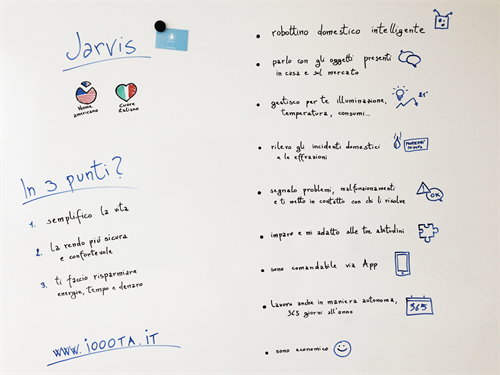 Jarvis
Nome
americano
Cuore
italiano
In 3 punti?
1. semplifico la vita
2. la rendo più sicura
e confortevole
3. ti faccio risparmiare
energie, tempo e denaro
www.iOOOTA.iT
• robottino domestico intelligente
• parlo con gli oggetti presenti
in casa e sul mercato
• gestisco per te illuminazione,
temperatura, consumi...
21°
• rilevo gli incidenti domestici
e le effrazioni
• segnalo problemi, malfunzionamenti
e ti metto in contatto con chi li risolve
OK
• imparo e mi adatto alle tue abitudini
• sono comandabile via App
• lavoro anche in maniera autonoma,
365 giorni all'anno
365
• sono economico